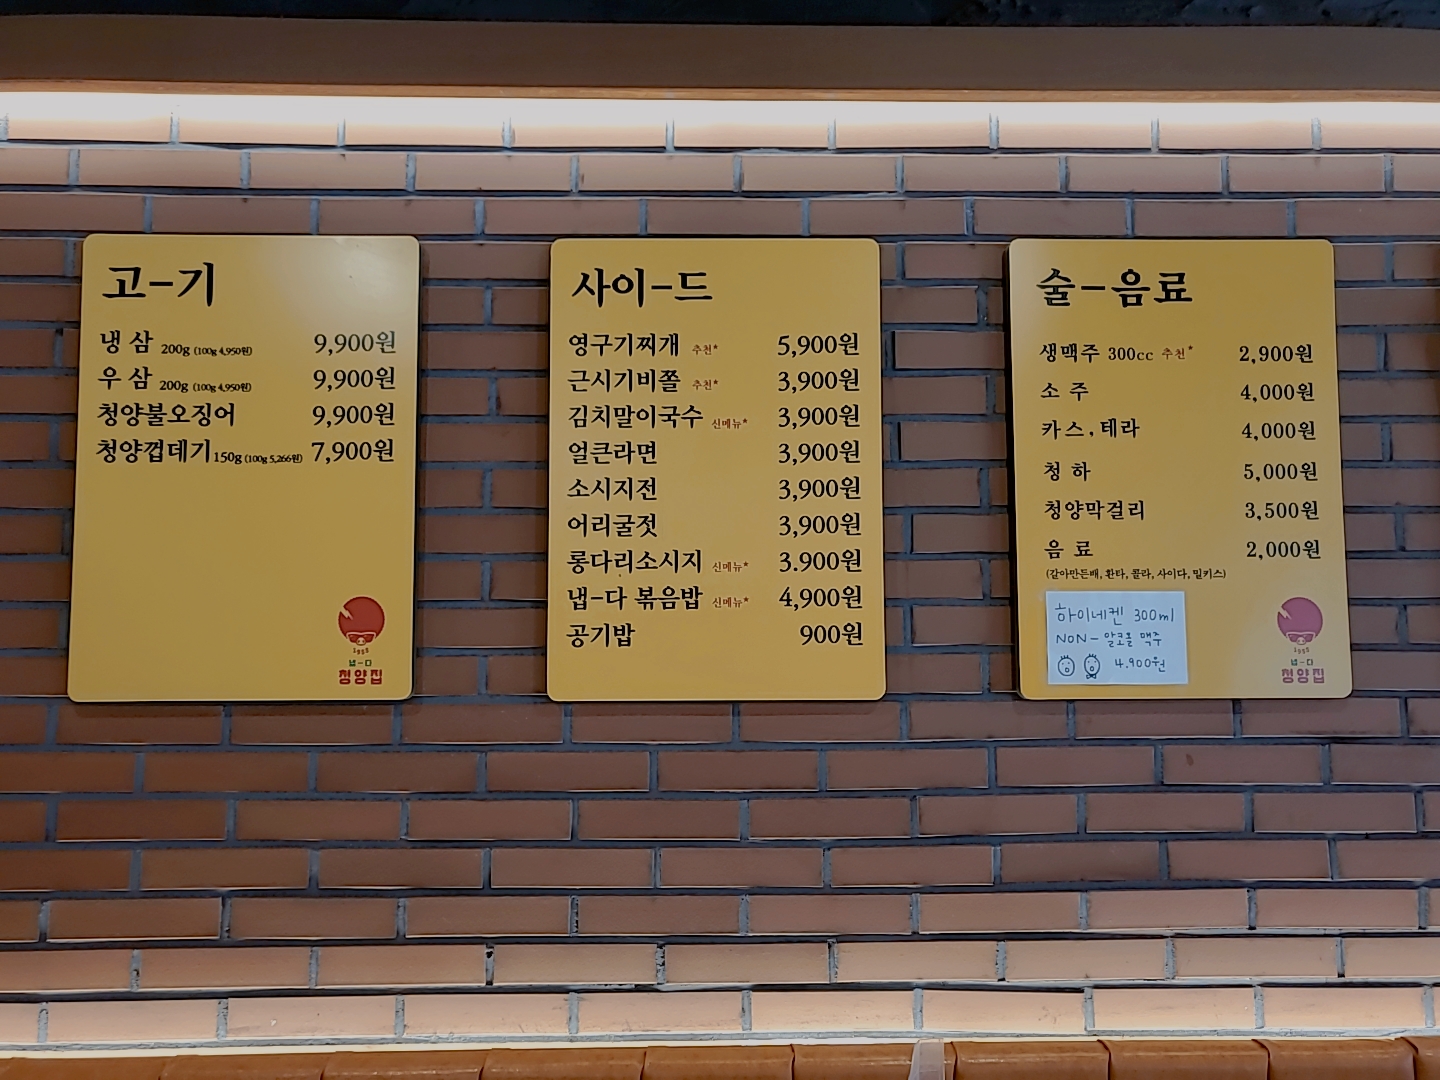 고-기
냉 삼 200g (100g 4,950원) 9,900원
우 삼 200g (100g 4,950원) 9,900원
청양불오징어 9,900원
청양껍데기 150g (100g 5,266원) 7,900원
1988
냅-다
청양집
사이-드
영구기찌개 추천* 5,900원
근시기비쫄 추천* 3,900원
김치말이국수 신메뉴* 3,900원
얼큰라면 3,900원
소시지전 3,900원
어리굴젓 3,900원
롱다리소시지 신메뉴* 3.900원
냅-다 볶음밥 신메뉴* 4,900원
공기밥 900원
술-음료
생맥주 300cc 추천* 2,900원
소 주 4,000원
카스, 테라 4,000원
청 하 5,000원
청양막걸리 3,500원
음 료 2,000원
(갈아만든배, 환타, 콜라, 사이다, 밀키스)
하이네켄 300ml
NON - 알코올 맥주
4.900원
1988
냅-다
청양집